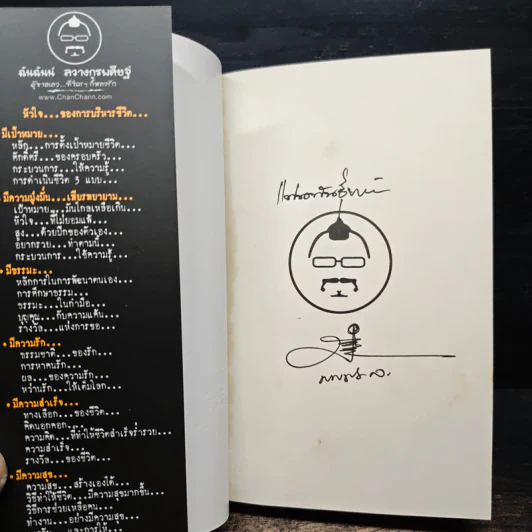 ฉันฉันน์ ลวางกูรพสิษฐ์
www.ChanChann.com
หัวใจ...ของการบริหารชีวิต...
มีเป้าหมาย...
หลัก...การตั้งเป้าหมายชีวิต...
ศักดิ์ศรี...ของครอบครัว...
กระบวนการ...ให้ความรู้...
การดำเนินชีวิต 3 แบบ...
มีความมุ่งมั่น...เพียรพยายาม...
เป้าหมาย...มันไกลเหลือเกิน...
หัวใจ...ที่ไม่ยอมแพ้...
สูง...ด้วยปีกของตัวเอง...
อยากรวย...ทำตามนี้...
กระบวนการ...ใช้ความรู้...
• มีธรรมะ...
หลักการในการพัฒนาตนเอง...
การศึกษาธรรม...
ธรรมะ...ในกำมือ...
บุญคุณ...กับความแค้น...
รางวัล...แห่งการขอ...
• มีความรัก...
ธรรมชาติ...ของรัก...
การหาคนรัก...
ผล...ของความรัก...
หว่านรัก...ให้เต็มโลก...
• มีความสำเร็จ...
ทางเลือก...ของชีวิต...
คิดนอกคอก...
ความคิด...ที่ทำให้ชีวิตสำเร็จร่ำรวย...
ความสำเร็จ...
รางวัล...ของชีวิต...
• มีความสุข...
ความสุข...สร้างเองได้...
วิธีทำให้ชีวิต...มีความสุขมากขึ้น...
วิธีการช่วยเหลือคน...
ทำงาน...อย่างมีความสุข...